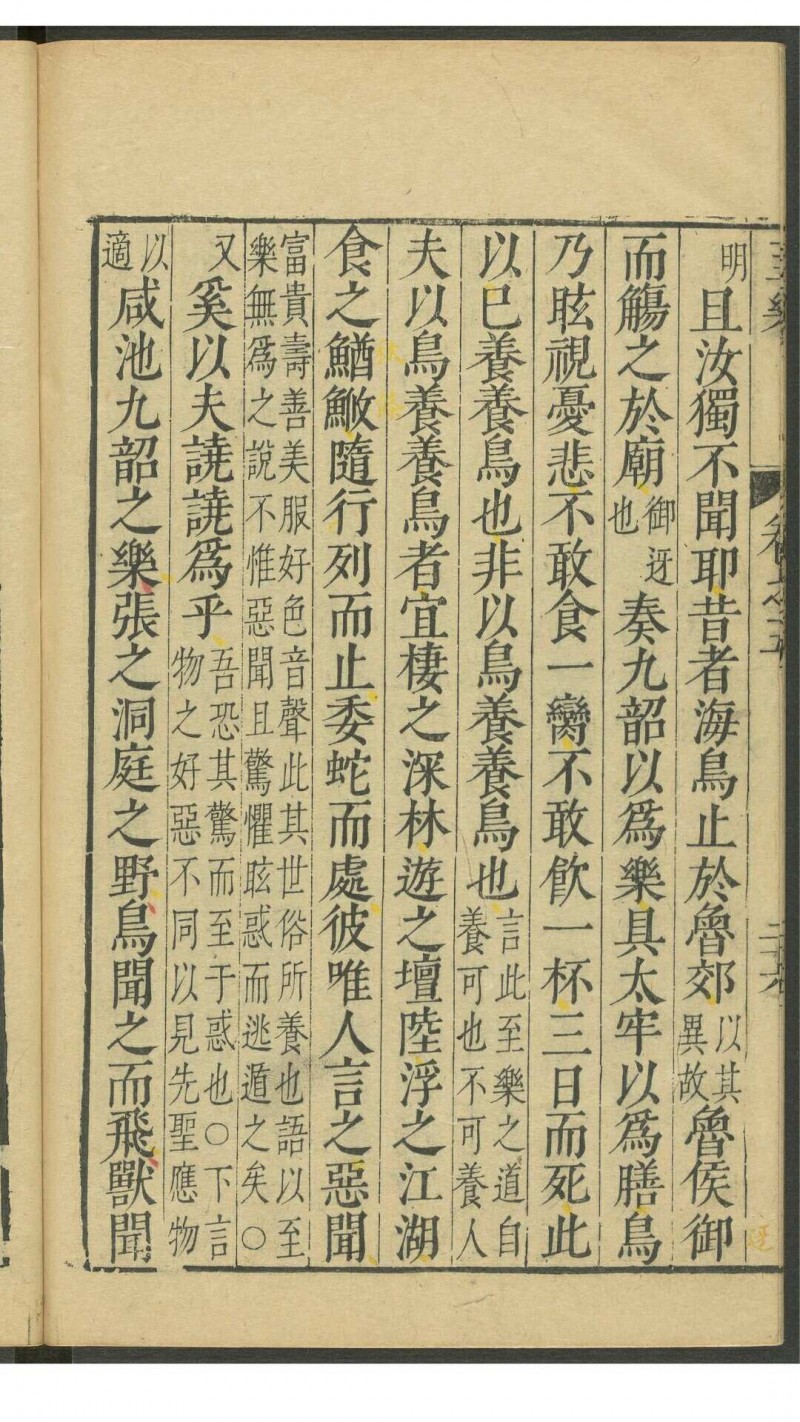 至樂
明且汝獨不聞耶昔者海鳥止於魯郊以其異故魯侯御
而觴之於廟御迓也奏九韶以爲樂具太牢以爲膳鳥
乃眩視憂悲不敢食一臠不敢飲一杯三日而死此
以已養養鳥也非以鳥養養鳥也言此至樂之道自養可也不可養人
夫以鳥養養鳥者宜棲之深林遊之壇陸浮之江湖
食之鰌䱔隨行列而止委蛇而處彼唯人言之惡聞
富貴壽善美服好色音聲此其世俗所養也語以至樂無爲之說不惟惡聞且驚懼眩惑而逃遁之矣○
又奚以夫譊譊爲乎吾恐其驚而至于惑也○下言物之好惡不同以見先聖應物
以適咸池九韶之樂張之洞庭之野鳥聞之而飛獸聞